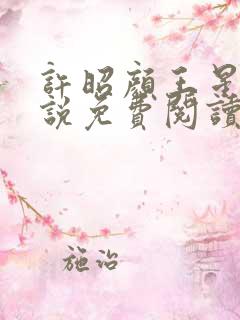 許昭顏王星
說免費閱讀
施治